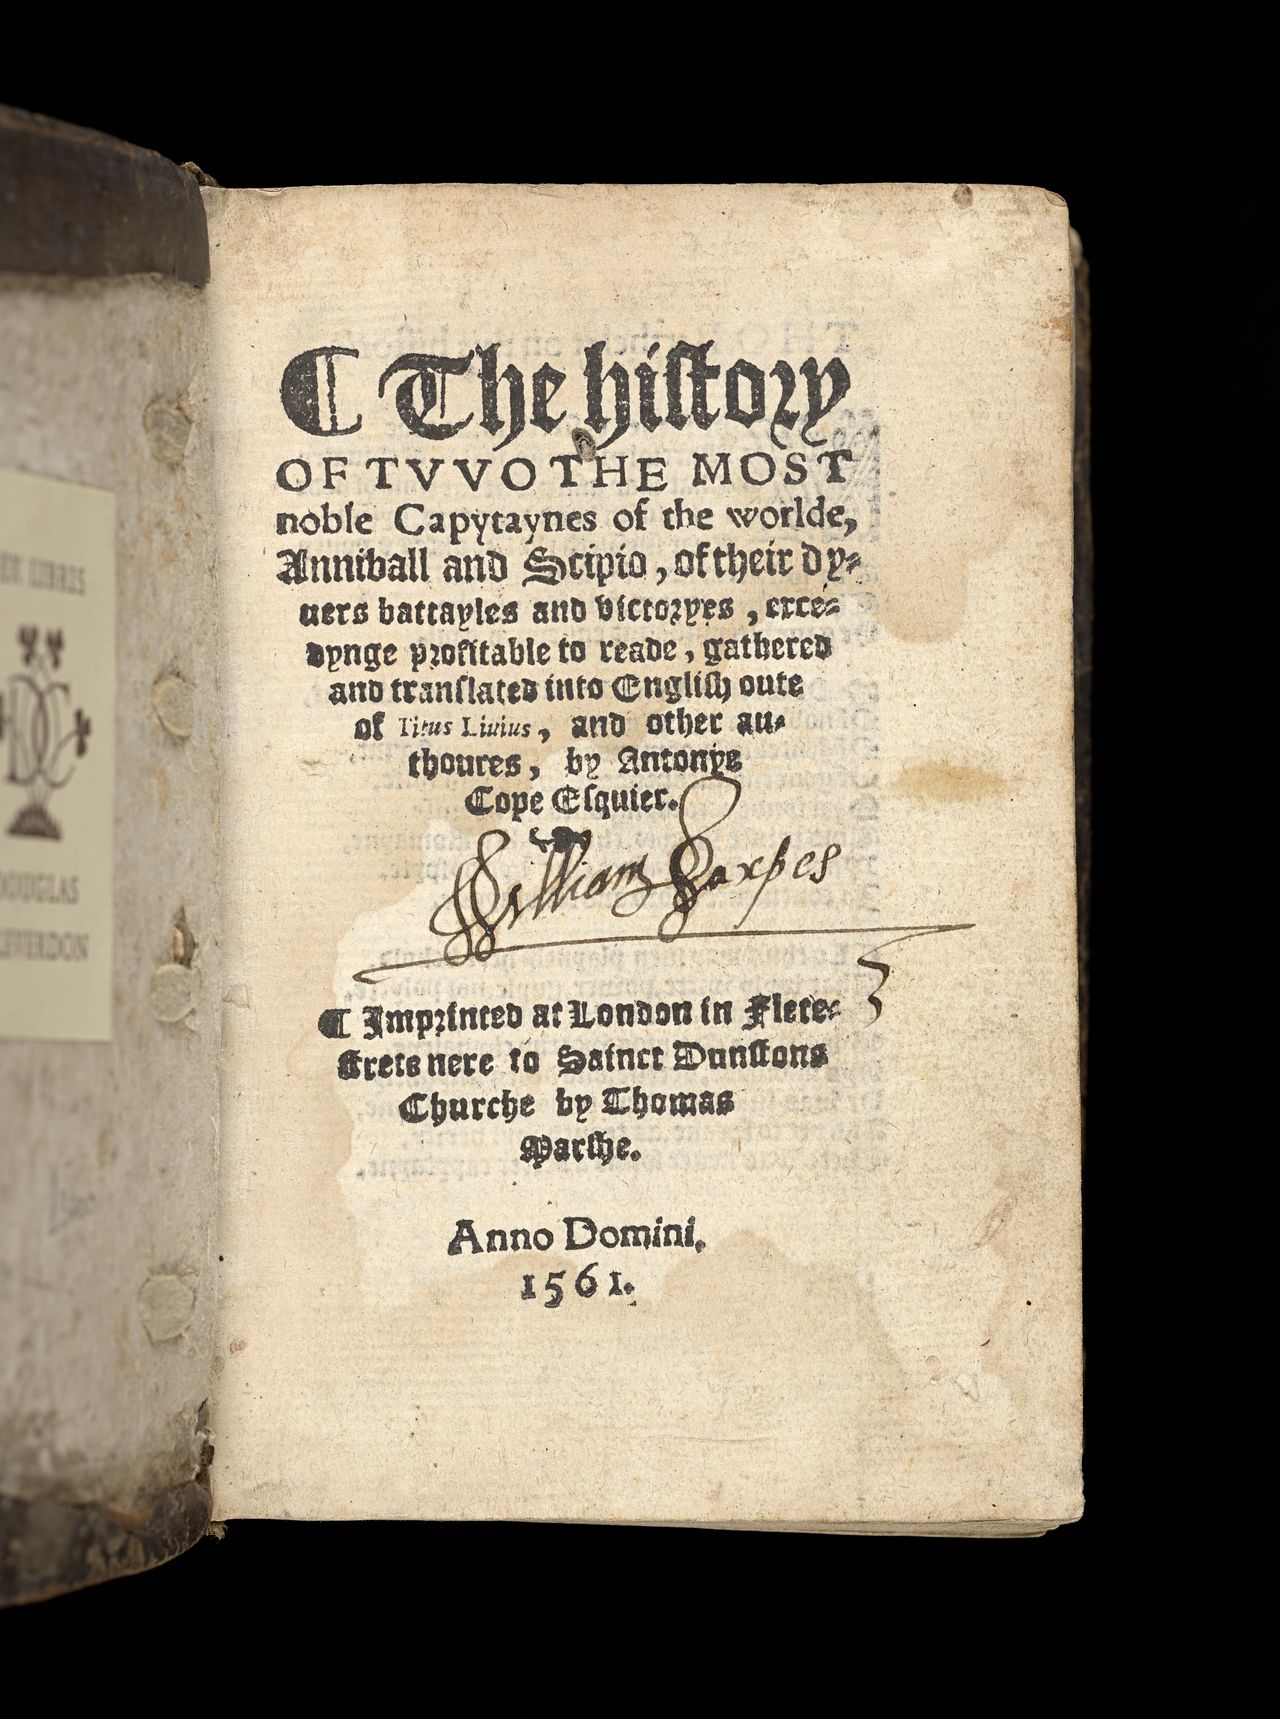 EX LIBRIS
DOUGLAS
CLEVERDON
⸿ The hiſtory
OF TVVO THE MOST
noble Capytaynes of the worlde,
Anniball and Scipio, of their dy⸗
uers battayles and victoryes, exce⸗
dynge profitable to reade, gathered
and tranſlated into Engliſh oute
of Titus Liuius, and other au⸗
thoures, by Antonye
Cope Eſquier.
William
⸿ Imprinted at London in Flete⸗
ſtrete nere to Sainct Dunſtons
Churche by Thomas
Marſhe.
Anno Domini.
1561.